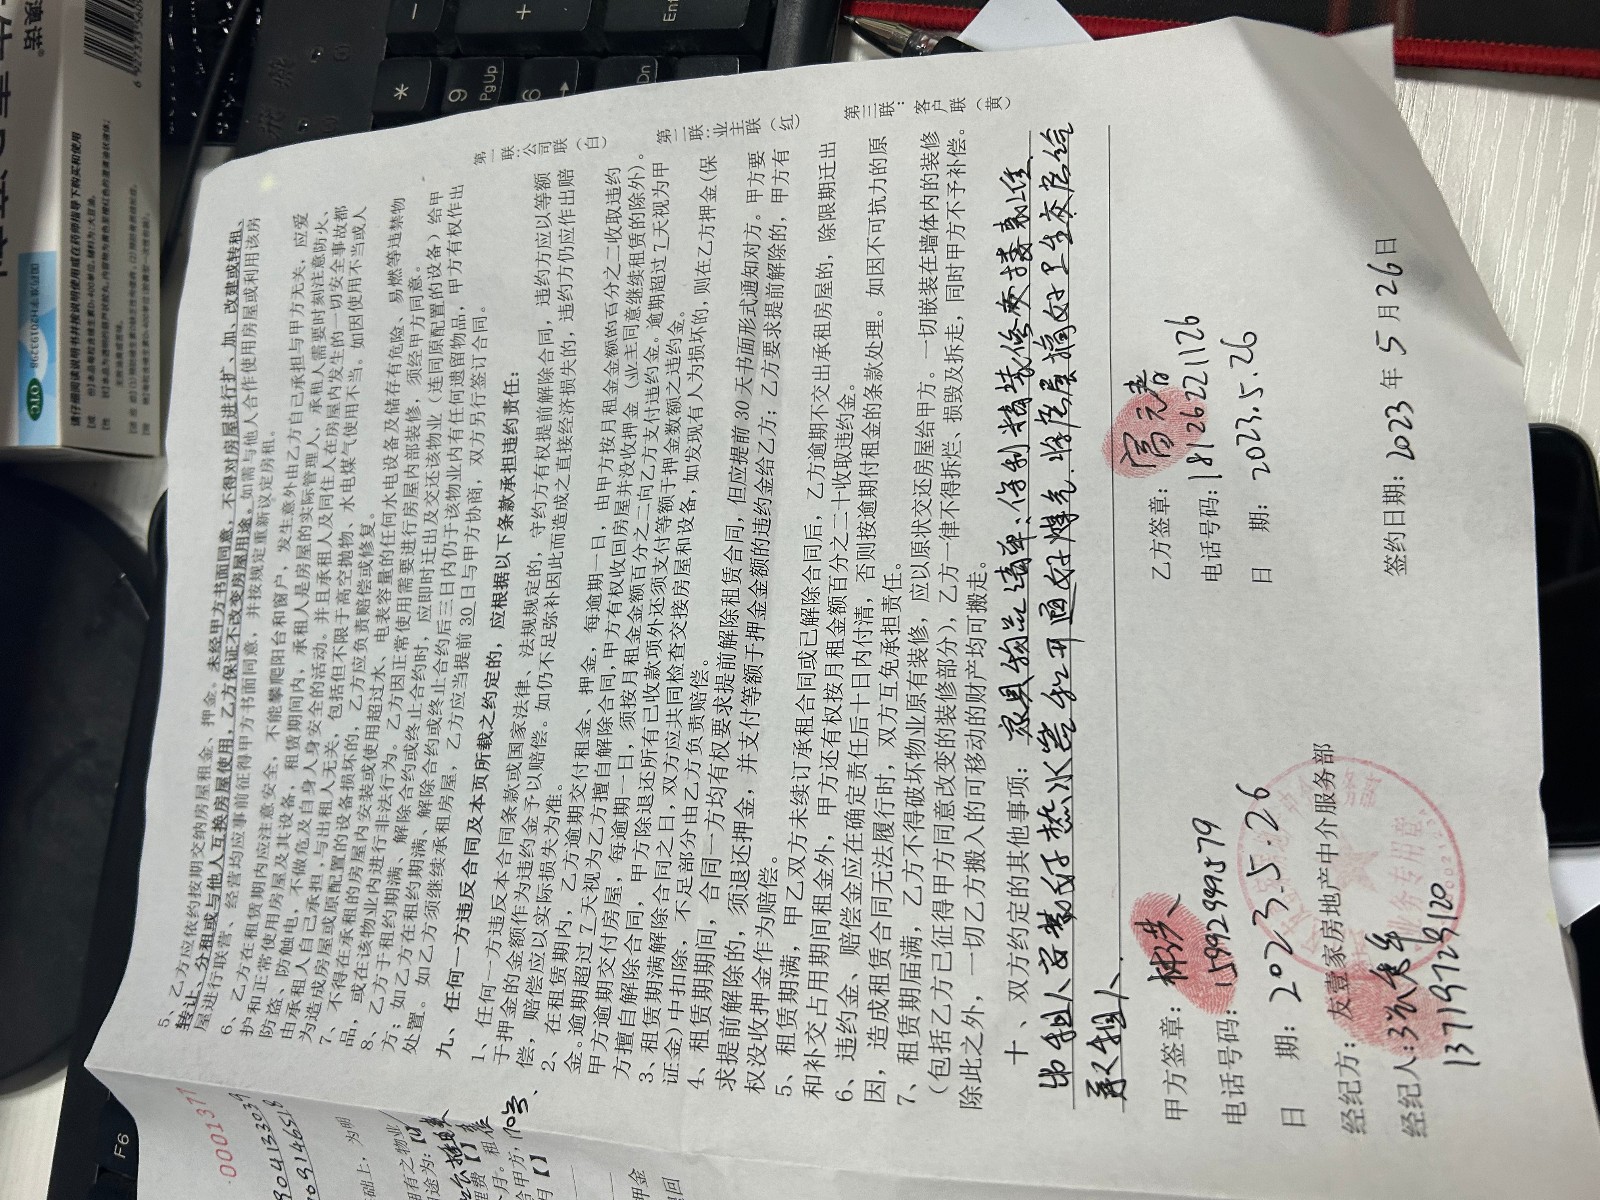 5、乙方应依约按期交纳房屋租金、押金。未经甲方书面同意，不得对房屋进行扩、加、改建或转租、
转让、分租或与他人互换房屋使用，乙方保证不改变房屋用途。如需与他人合作使用房屋或利用该房
屋进行联营、经营均应事前征得甲方书面同意，并按规定重新议定房租。
6、乙方在租赁期内应注意安全，不能攀爬阳台和窗户，发生意外由乙方自己承担与甲方无关，应爱
护和正常使用房屋及其设备，租赁期间内，承租人是房屋的实际管理人，承租人需要时刻注意防火、
防盗、防触电，不做危及自身人身安全的活动。并且承租人及同住人在房屋内发生的一切安全事做都
由承租人自己承担，与出租人无关，包括但不限于高空抛物、水电煤气使用不当。如因使用不当或人
为造成房屋或原配置的设备损坏的，乙方应负责赔偿或修复。
7、不得在承租的房屋内安装或使用超过水、电表容量的任何水电设备及储存有危险、易燃等违禁物
品，或在该物业内进行非法行为。乙方因正常使用需要进行房屋内部装修，须经甲方同意。
8、乙方于租约期满、解除合约或终止合约时，应即时迁出及交还该物业（连同原配置的设备）给甲
方；如乙方在租约期满、解除合约或终止合约后三日内仍于该物业内有任何遗留物品，甲方有权作出
处置。如乙方须继续承租房屋，乙方应当提前 30 日与甲方协商，双方另行签订合同。
九、任何一方违反合同及本页所载之约定的，应根据以下条款承担违约责任：
1、任何一方违反本合同条款或国家法律、法规规定的，守约方有权提前解除合同，违约方应以等额
于押金的金额作为违约金予以赔偿。如仍不足弥补因此而造成之直接经济损失的，违约方仍应作出赔
偿，赔偿应以实际损失为准。
2、在租赁期内，乙方逾期交付租金、押金，每逾期一日，由甲方按月租金金额的百分之二收取违约
金。逾期超过 7 天视为乙方擅自解除合同，甲方有权收回房屋并没收押金（业主同意继续租赁的除外）。
甲方逾期交付房屋，每逾期一日，须按月租金金额百分之二向乙方支付违约金。逾期超过 7 天视为甲
方擅自解除合同，甲方除退还所有已收款项外还须支付等额于押金数额之违约金。
3、租赁期满解除合同之日，双方应共同检查交接房屋和设备，如发现有人为损坏的，则在乙方押金(保
证金）中扣除，不足部分由乙方负责赔偿。
4、租赁期期间，合同一方均有权要求提前解除租赁合同，但应提前 30 天书面形式通知对方。甲方要
求提前解除的，须退还押金，并支付等额于押金金额的违约金给乙方；乙方要求提前解除的，甲方有
权没收押金作为赔偿。
5、租赁期满，甲乙双方未续订承租合同或已解除合同后，乙方逾期不交出承租房屋的，除限期迁出
和补交占用期间租金外，甲方还有权按月租金额百分之二十收取违约金。
6、违约金、赔偿金应在确定责任后十日内付清，否则按逾期付租金的条款处理。如因不可抗力的原
因，造成租赁合同无法履行时，双方互免承担责任。
7、租赁期届满，乙方不得破坏物业原有装修，应以原状交还房屋给甲方。一切嵌装在墙体内的装修
（包括乙方已征得甲方同意改变的装修部分），乙方一律不得拆烂、损毁及拆走，同时甲方不予补偿。
除此之外，一切乙方搬入的可移动的财产均可搬走。
十、双方约定的其他事项：家具物品清单：
出租人安装好热水器和开通好煤气.将房屋搞好卫生交房给
承租人.
甲方签章：
电话号码：15992999579
日 期：2023.5.26
乙方签章：
电话号码：18126221126
日 期：2023.5.26
经纪方：友壹家房地产中介服务部
经纪人：
13719729120
签约日期：2023 年 5 月 26 日
业务专用章
第一联：公司联（白）
第二联：业主联（红）
第三联：客户联（黄）
0001377
F6
OTC
国药准字H20193298
请仔细阅读说明书并按说明使用或在药师指导下购买和使用
9
PgUp
Ent